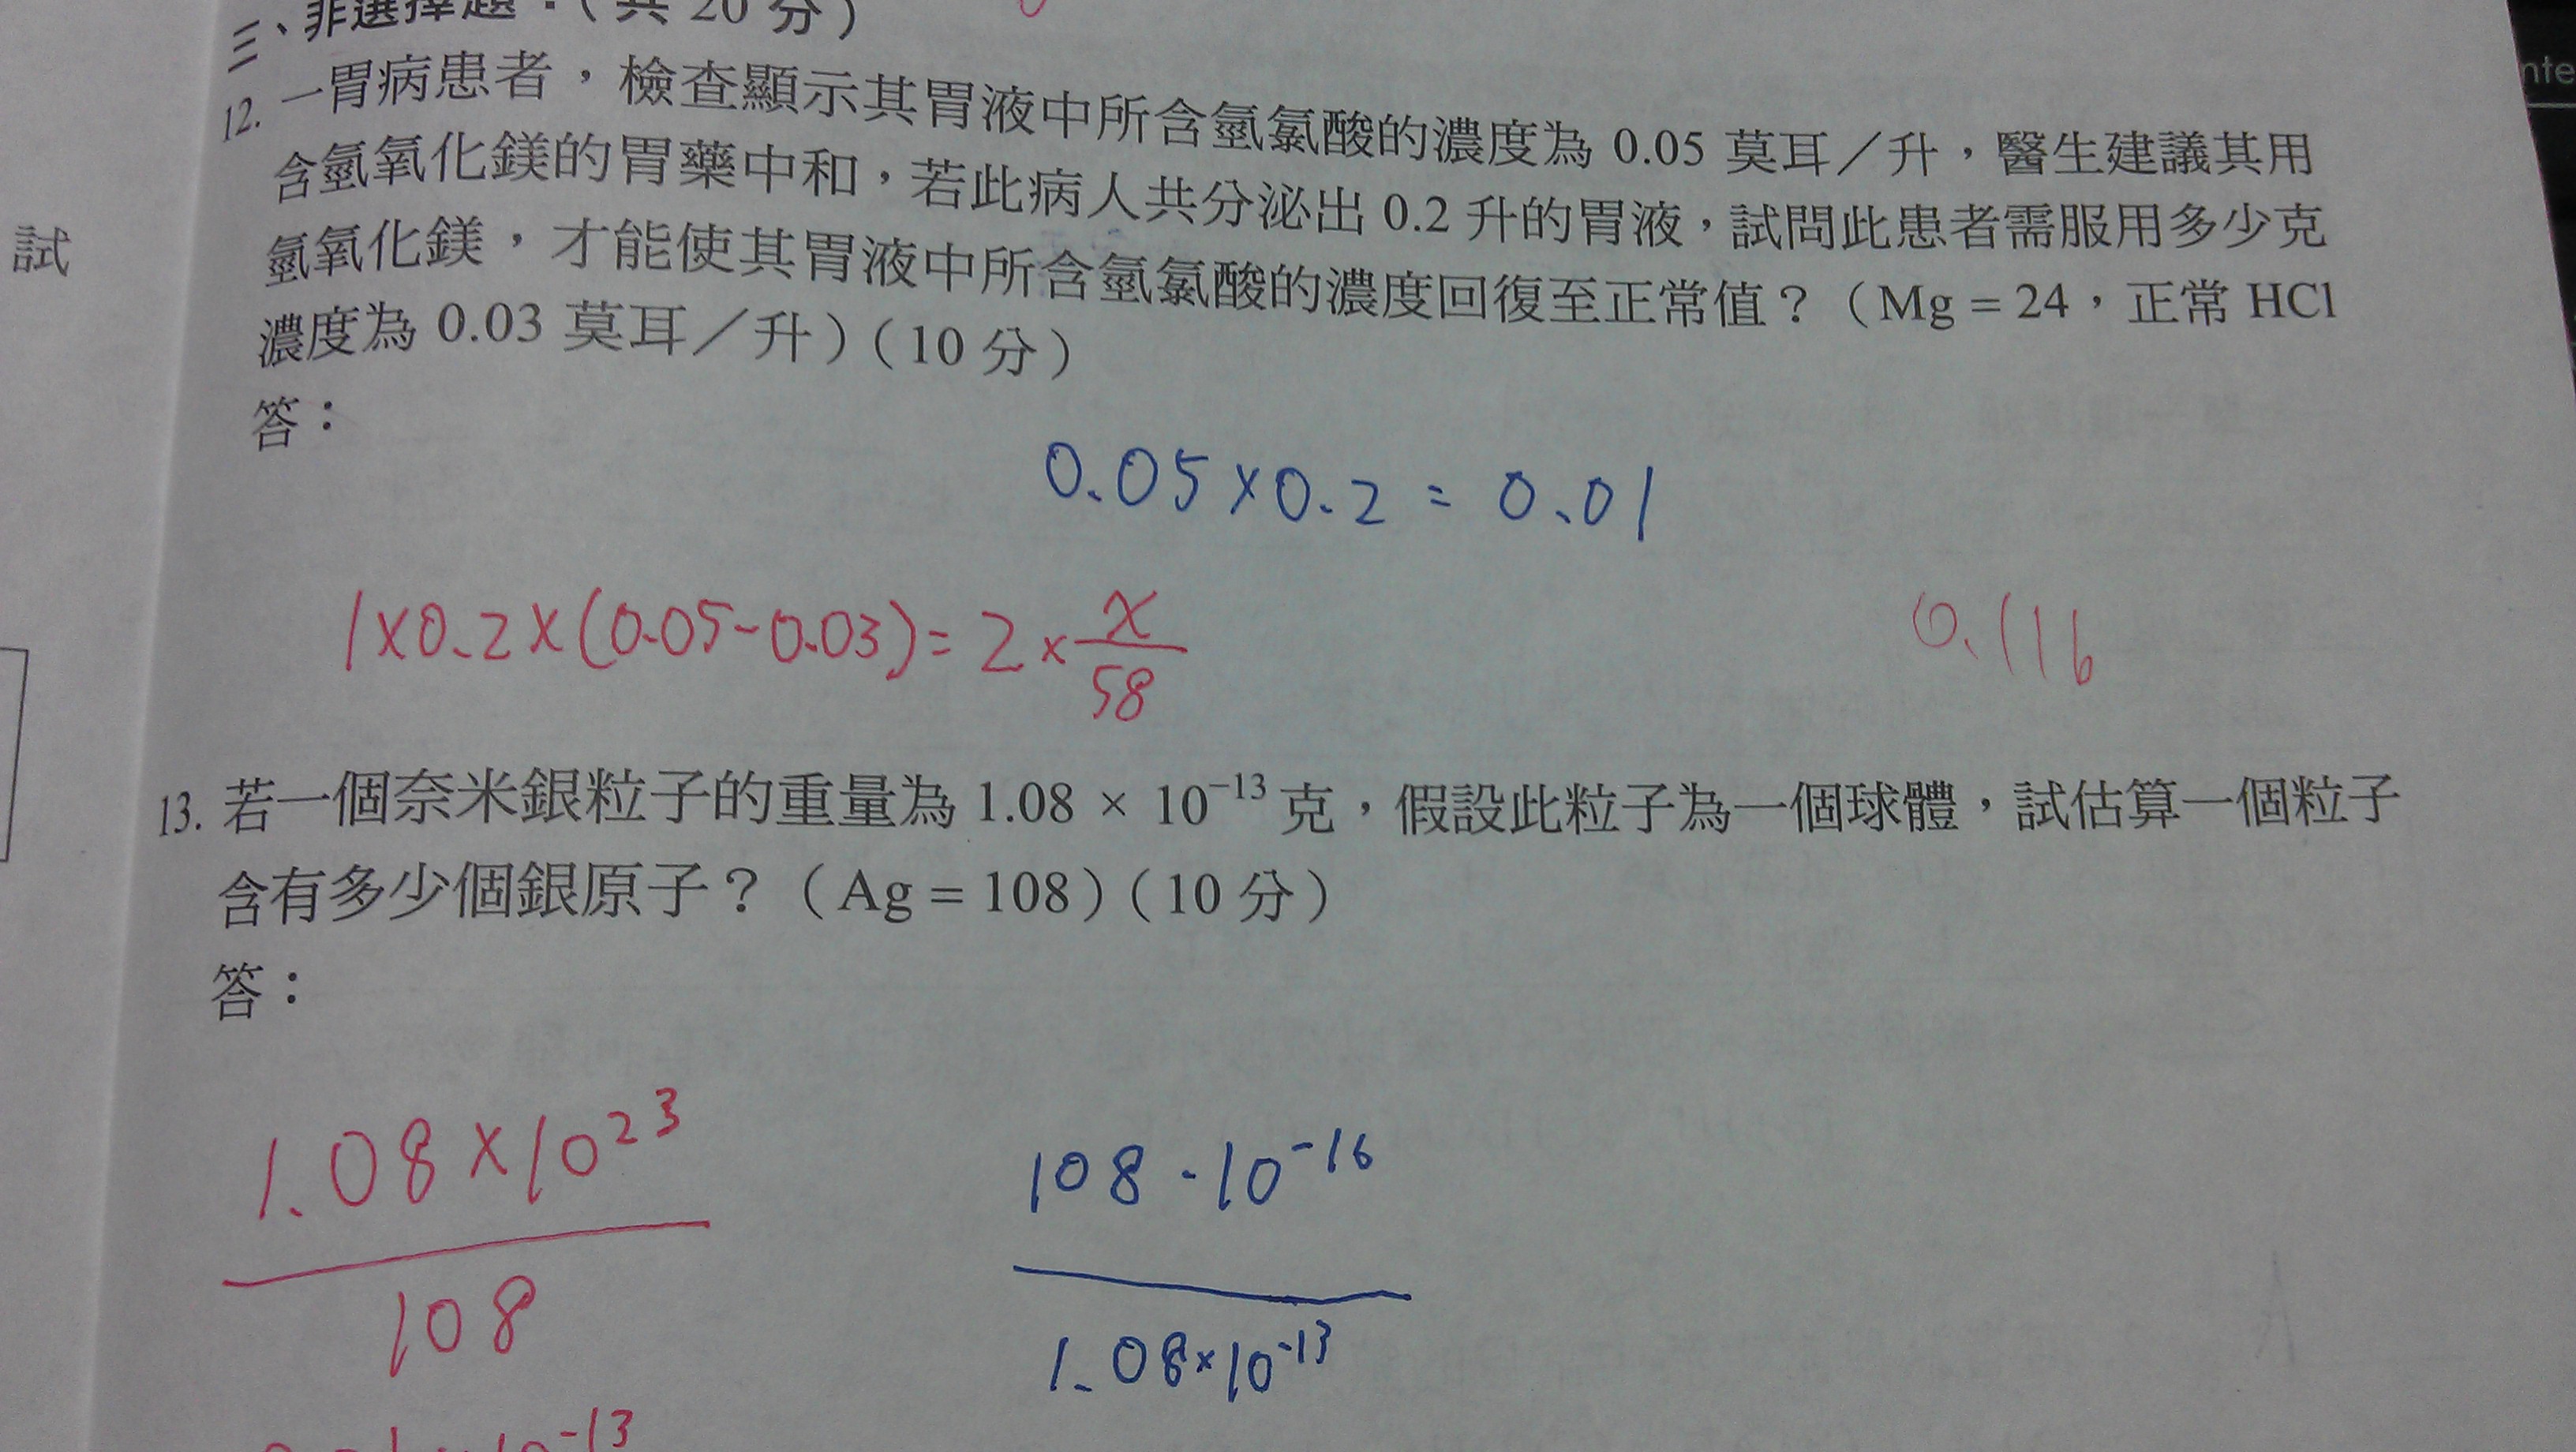 三、非選擇題：（共 20 分）
12. 一胃病患者，檢查顯示其胃液中所含氫氯酸的濃度為 0.05 莫耳／升，醫生建議其用
含氫氧化鎂的胃藥中和，若此病人共分泌出 0.2 升的胃液，試問此患者需服用多少克
氫氧化鎂，才能使其胃液中所含氫氯酸的濃度回復至正常值？（Mg = 24，正常 HCl
濃度為 0.03 莫耳／升）（10 分）
答：
0.05×0.2 = 0.01
1×0.2×(0.05-0.03) = 2×x/58
0.116
13. 若一個奈米銀粒子的重量為 1.08 × 10⁻¹³ 克，假設此粒子為一個球體，試估算一個粒子
含有多少個銀原子？（Ag = 108）（10 分）
答：
1.08×10²³
108
108·10⁻¹⁶
1.08×10⁻¹³
試
nte